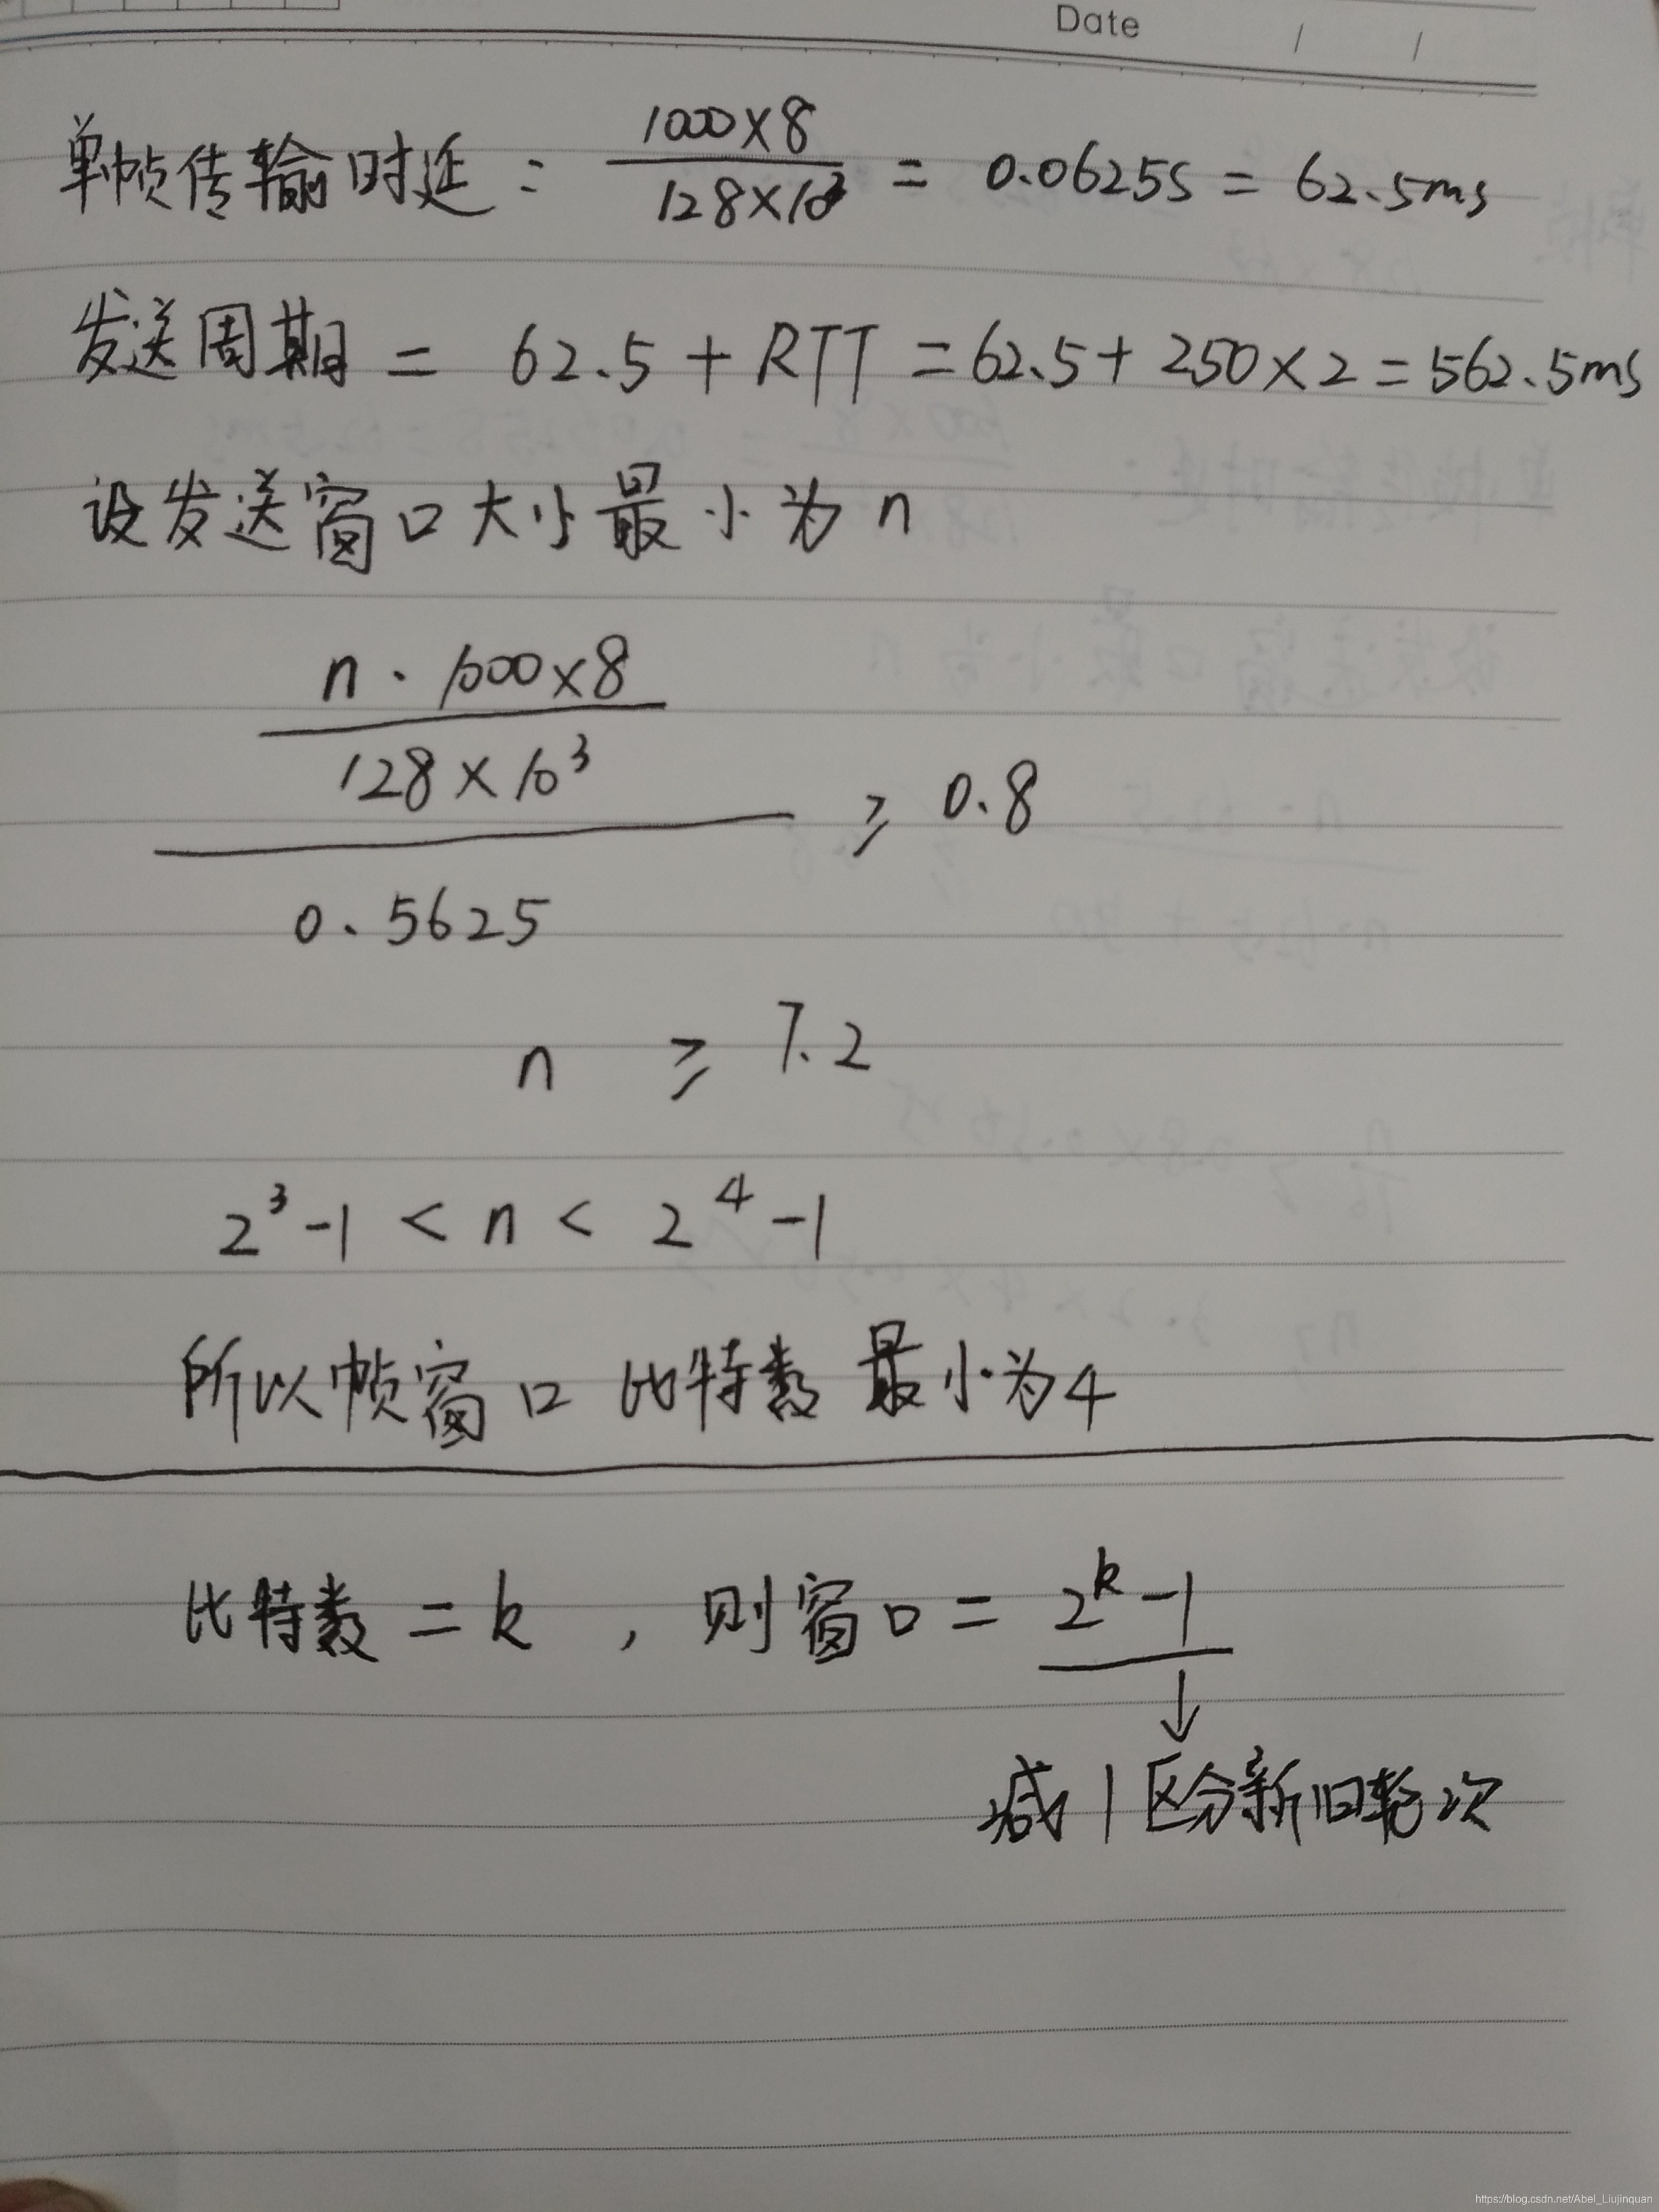 Date / /
单帧传输时延: 1000×8 / 128×10³ = 0.0625s = 62.5ms
发送周期 = 62.5 + RTT = 62.5 + 250×2 = 562.5ms
设发送窗口大小最小为 n
n · 1000×8
128×10³
≥ 0.8
0.5625
n ≥ 7.2
2³-1 < n < 2⁴-1
所以帧窗口 比特数 最小为4
比特数 = k , 则窗口 = 2ᵏ-1
↓
减1区分新旧轮次
https://blog.csdn.net/Abel_Liujinquan